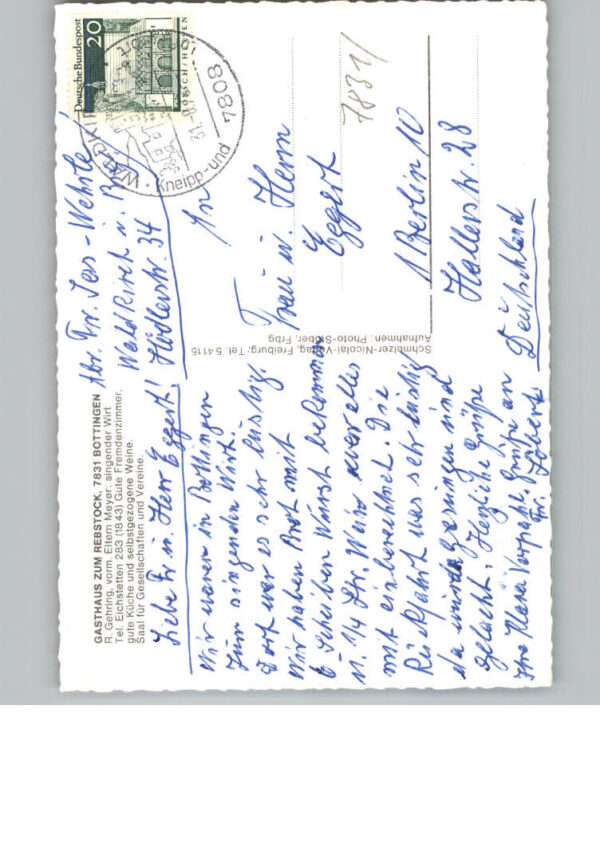 GASTHAUS ZUM REBSTOCK, 7831 BOTTINGEN
R. Gehring, vorm. Eltern Meyer; singender Wirt
Tel. Eichstetten 283 (1843) Gute Fremdenzimmer,
gute Küche und selbstgezogene Weine.
Saal für Gesellschaften und Vereine.
Liebe Fr u. Herr Eggert!
Wir waren in Bottingen
zum singenden Wirt.
Dort war es sehr lustig.
Wir haben Brot mit
6 Scheiben Wurst bekommen
u. 1/4 Ltr. Wein war alles
mit einberechnet. Die
Rückfahrt war sehr lustig
da wurde gesungen und
gelacht. Herzliche Grüße
Ihre Klara Grüße an
Fr.
Abr. Fr.
Waldkirch i. Brg
Hödlerstr. 34
Schmelzer-Nicolai-Verlag, Freiburg, Tel. 5 4115
Aufnahmen: Photo-Stober, Frbg.
Deutsche Bundespost
20
LORSCH/HESSEN
7808
Kneipp- und
7831/
An
Frau u. Herrn
Eggert
1 Berlin 10
Hallerstr. 28
Deutschland